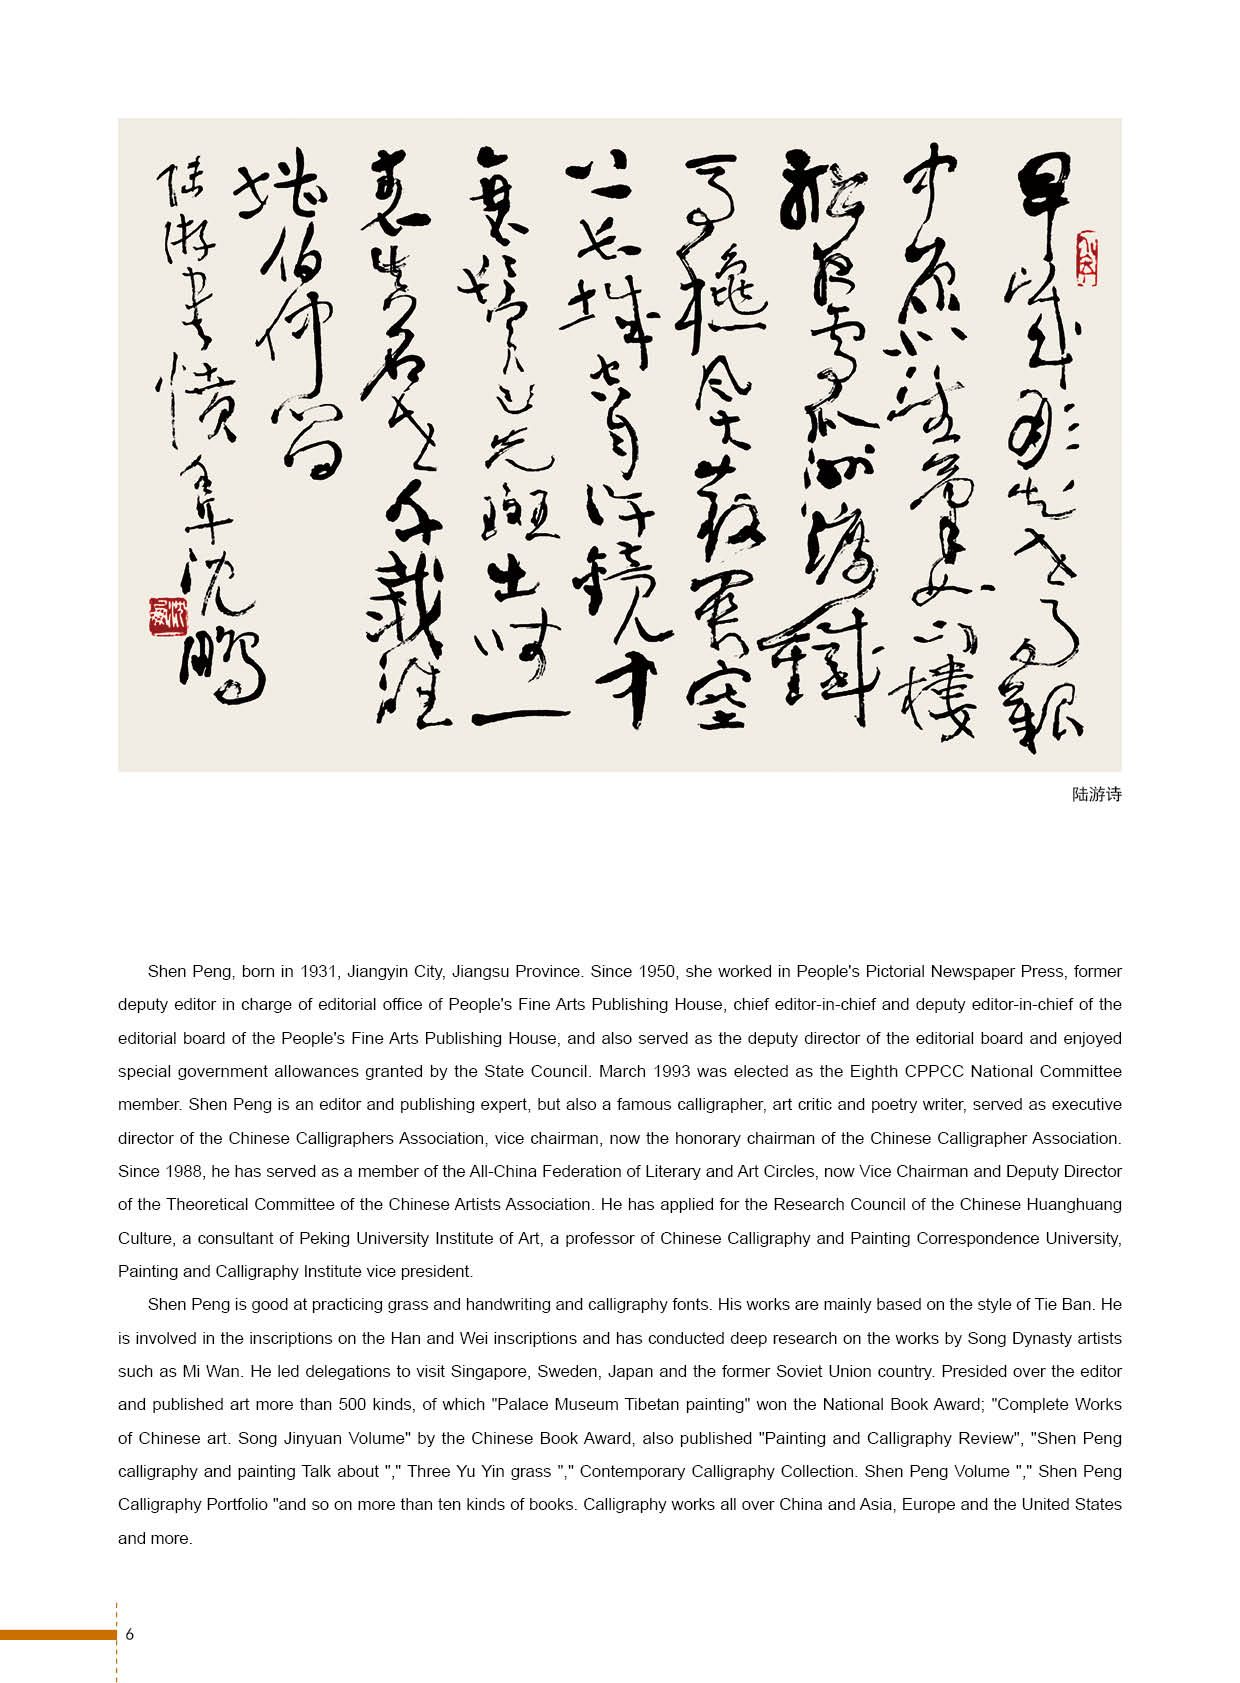 早歲那知世事艱
中原北望氣如山樓
船夜雪瓜洲渡鐵
馬秋風大散關塞
上長城空自許鏡中
衰鬢已先斑出師一
表真名世千載誰
堪伯仲間
陸游書憤 沈鵬
陆游诗
Shen Peng, born in 1931, Jiangyin City, Jiangsu Province. Since 1950, she worked in People's Pictorial Newspaper Press, former
deputy editor in charge of editorial office of People's Fine Arts Publishing House, chief editor-in-chief and deputy editor-in-chief of the
editorial board of the People's Fine Arts Publishing House, and also served as the deputy director of the editorial board and enjoyed
special government allowances granted by the State Council. March 1993 was elected as the Eighth CPPCC National Committee
member. Shen Peng is an editor and publishing expert, but also a famous calligrapher, art critic and poetry writer, served as executive
director of the Chinese Calligraphers Association, vice chairman, now the honorary chairman of the Chinese Calligrapher Association.
Since 1988, he has served as a member of the All-China Federation of Literary and Art Circles, now Vice Chairman and Deputy Director
of the Theoretical Committee of the Chinese Artists Association. He has applied for the Research Council of the Chinese Huanghuang
Culture, a consultant of Peking University Institute of Art, a professor of Chinese Calligraphy and Painting Correspondence University,
Painting and Calligraphy Institute vice president.
Shen Peng is good at practicing grass and handwriting and calligraphy fonts. His works are mainly based on the style of Tie Ban. He
is involved in the inscriptions on the Han and Wei inscriptions and has conducted deep research on the works by Song Dynasty artists
such as Mi Wan. He led delegations to visit Singapore, Sweden, Japan and the former Soviet Union country. Presided over the editor
and published art more than 500 kinds, of which "Palace Museum Tibetan painting" won the National Book Award; "Complete Works
of Chinese art. Song Jinyuan Volume" by the Chinese Book Award, also published "Painting and Calligraphy Review", "Shen Peng
calligraphy and painting Talk about "," Three Yu Yin grass "," Contemporary Calligraphy Collection. Shen Peng Volume "," Shen Peng
Calligraphy Portfolio "and so on more than ten kinds of books. Calligraphy works all over China and Asia, Europe and the United States
and more.
6